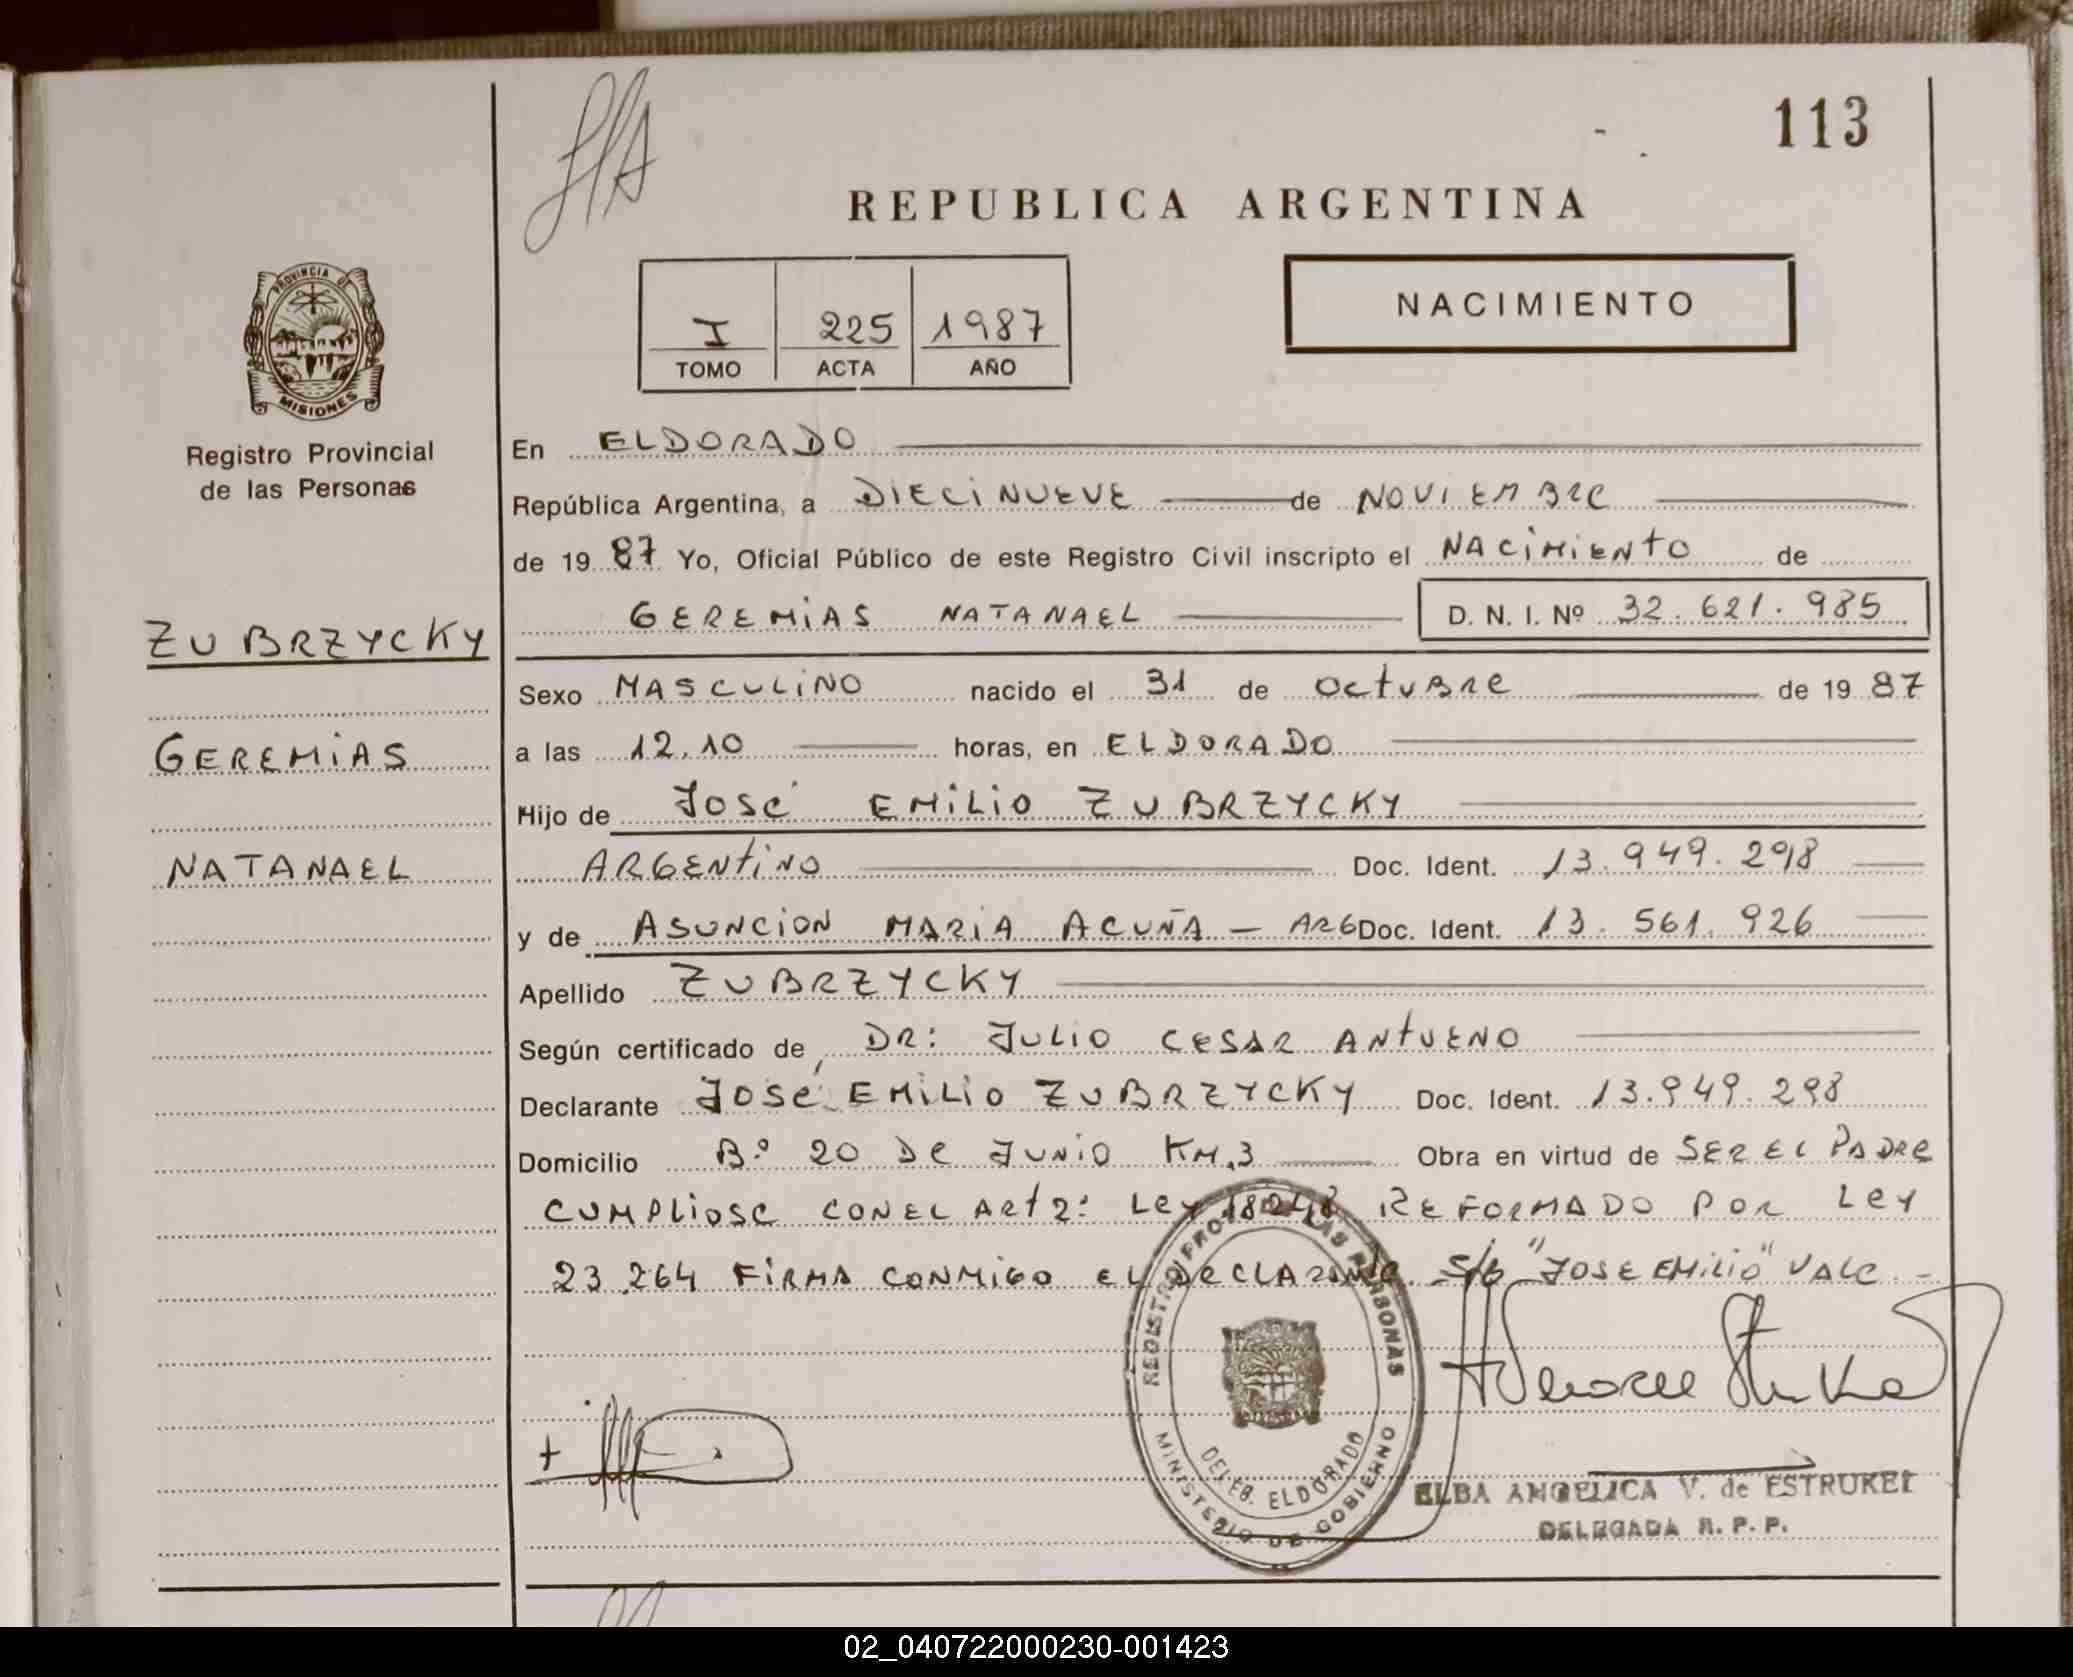 113
REPUBLICA ARGENTINA
I 225 1987
TOMO ACTA AÑO
NACIMIENTO
PROVINCIA DE
MISIONES
Registro Provincial
de las Personas
ZUBRZYCKY
GEREMIAS
NATANAEL
En ELDORADO
República Argentina, a DIECINUEVE de NOVIEMBRE
de 19 87 Yo, Oficial Público de este Registro Civil inscripto el NACIMIENTO de
GEREMIAS NATANAEL D. N. I. Nº 32.621.985
Sexo MASCULINO nacido el 31 de OCTUBRE de 19 87
a las 12.10 horas, en ELDORADO
Hijo de JOSÉ EMILIO ZUBRZYCKY
ARGENTINO Doc. Ident. 13.949.298
y de ASUNCION MARIA ACUÑA - ARG Doc. Ident. 13.561.926
Apellido ZUBRZYCKY
Según certificado de DR: JULIO CESAR ANTUENO
Declarante JOSÉ EMILIO ZUBRZYCKY Doc. Ident. 13.949.298
Domicilio Bº 20 DE JUNIO KM.3 Obra en virtud de SER EL PADRE
CUMPLIOSE CON EL ART 2: LEY 18248 REFORMADO POR LEY
23.264 FIRMA CONMIGO EL DECLARANTE. S/b "JOSE EMILIO" VALE.-
REGISTRO PROV. DE LAS PERSONAS
DELEG. ELDORADO
MINISTERIO DE GOBIERNO
ELBA ANGELICA V. de ESTRUKEL
DELEGADA R. P. P.
02_040722000230-001423